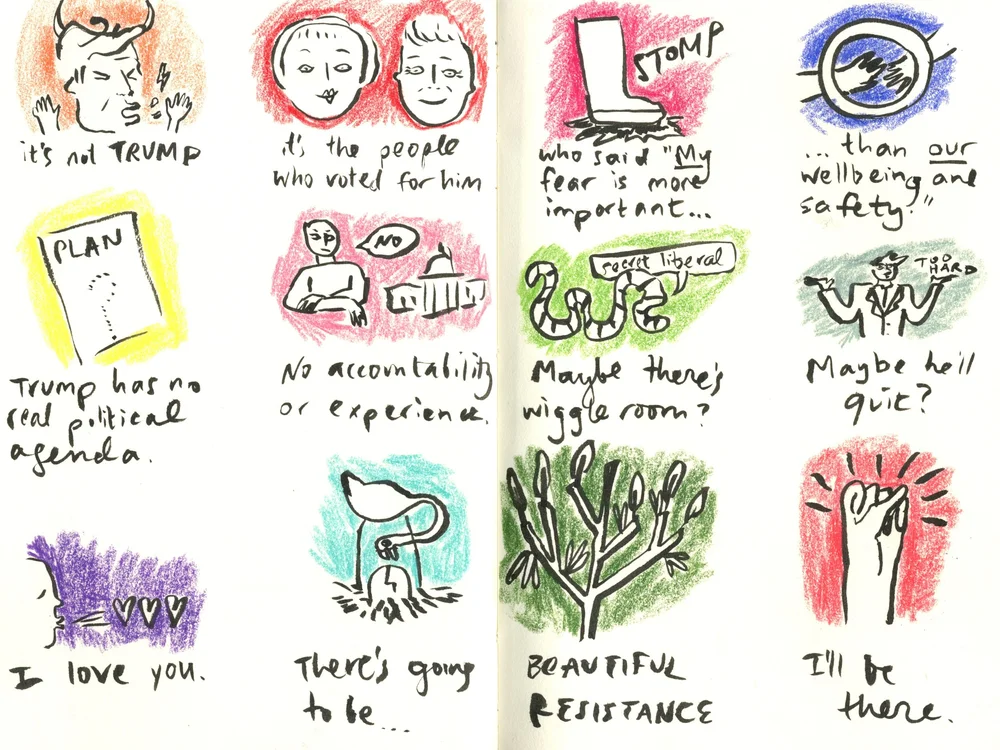 it's not TRUMP
it's the people
who voted for him
STOMP
who said "My
fear is more
important...
...than our
wellbeing and
safety."
PLAN
?
Trump has no
real political
agenda.
NO
No accountability
or experience.
secret liberal
Maybe there's
wiggle room?
TOO
HARD
Maybe he'll
quit?
I love you.
There's going
to be...
BEAUTIFUL
RESISTANCE
I'll be
there.